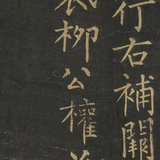 行右補闕
柳公權